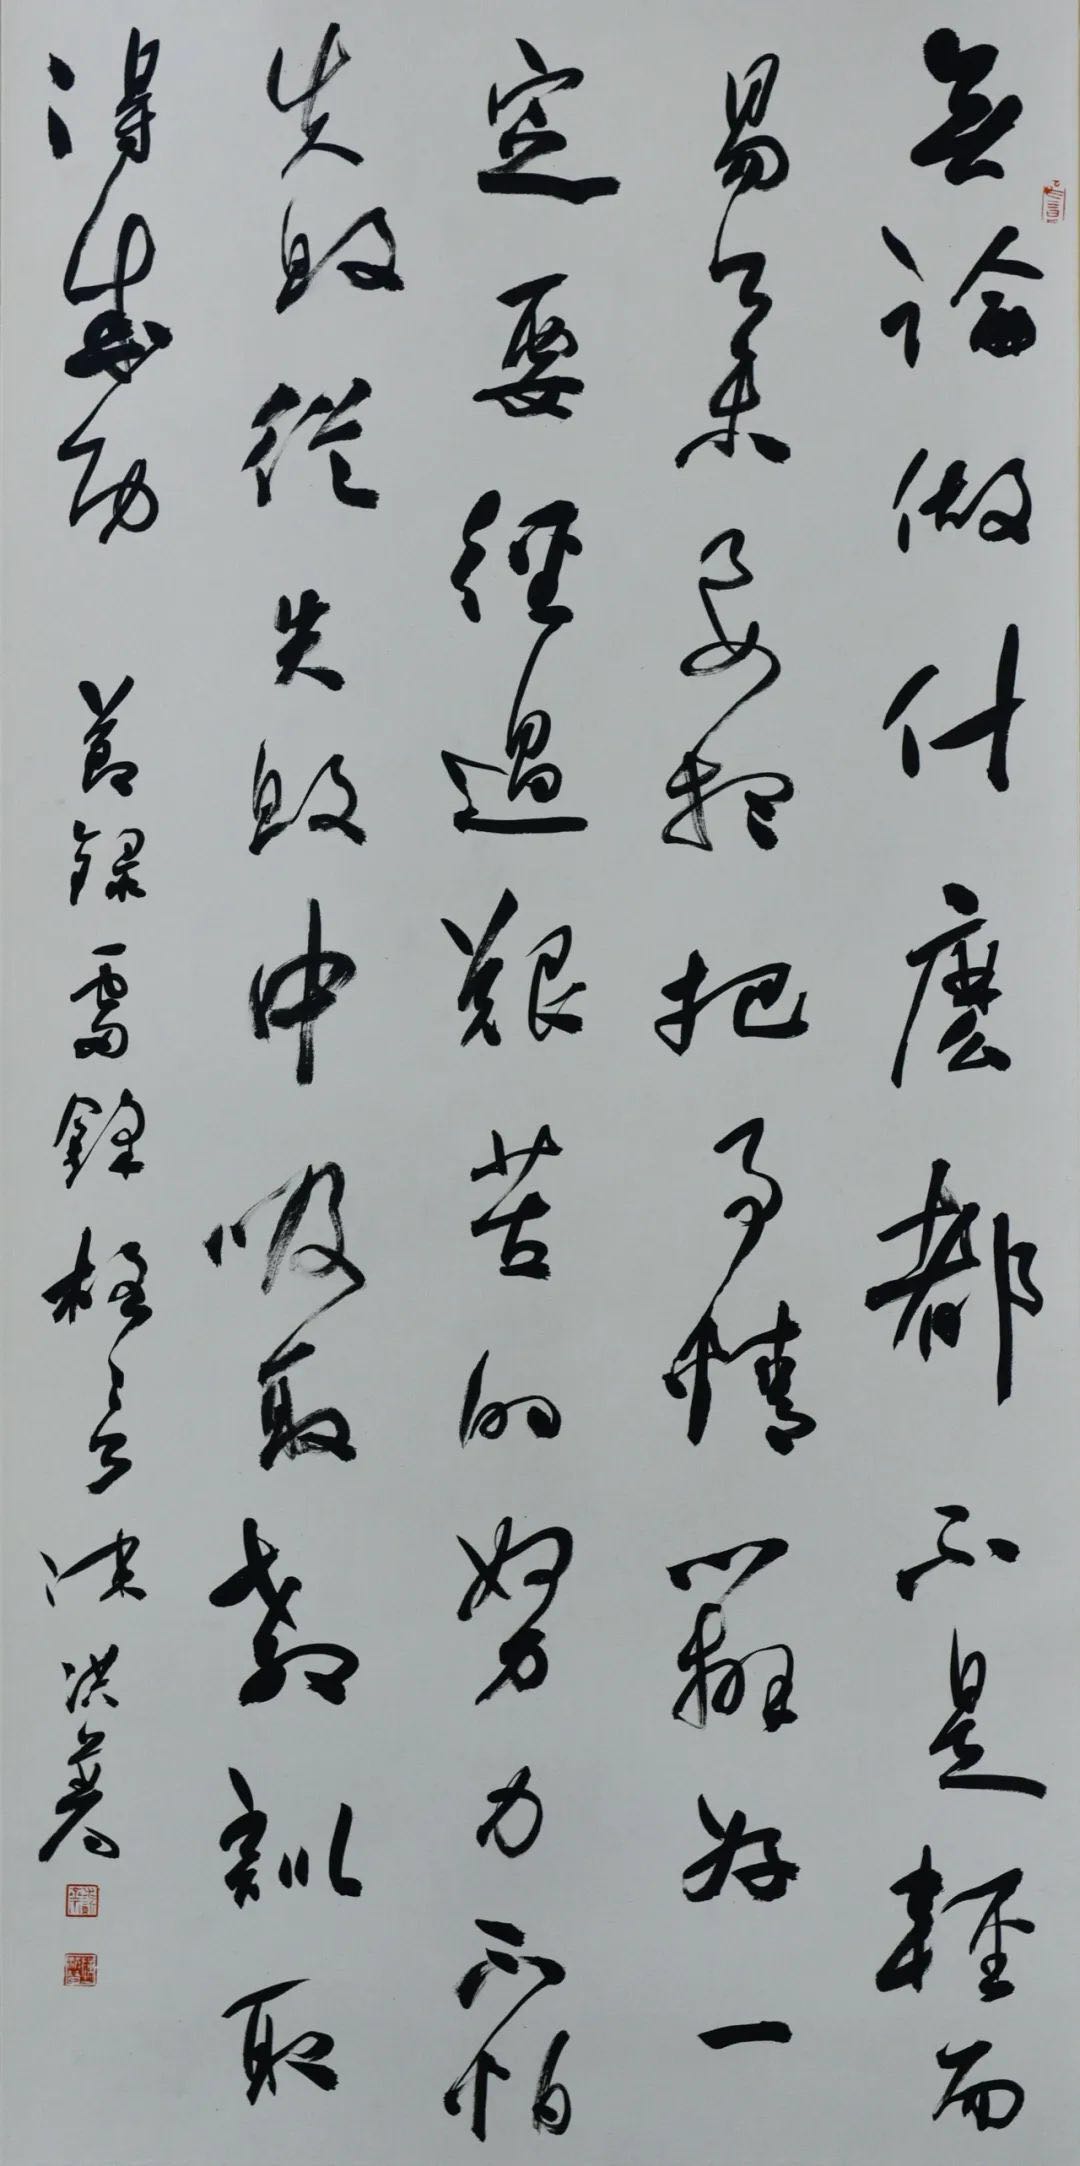 無論做什麼都不是輕而
易舉要想把事情辦好一
定要經過艱苦的努力不怕
失敗從失敗中吸取教訓取
得成功 節錄雷鋒格言 陳洪